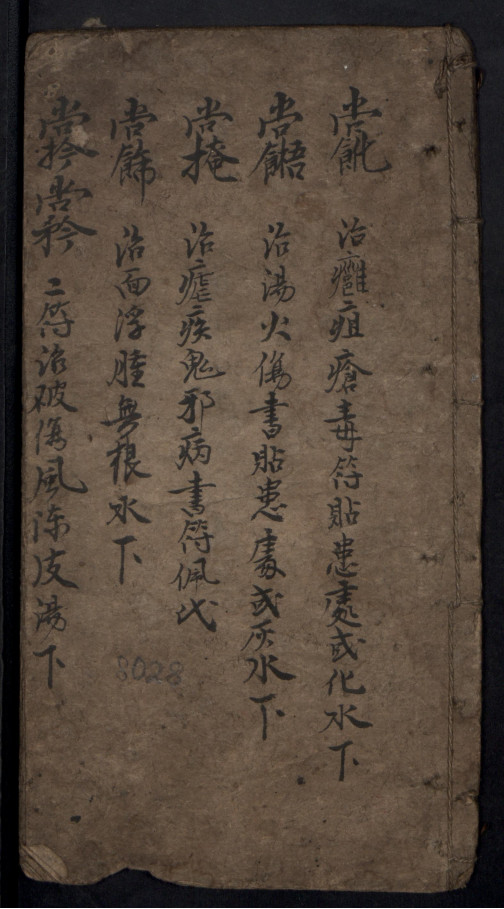 治癰疽瘡毒符貼患處或化水下
治湯火傷書貼患處或灰水下
治瘧疾鬼邪病書符佩戌
治面浮腫無根水下
二符治破傷風陈皮湯下
8028